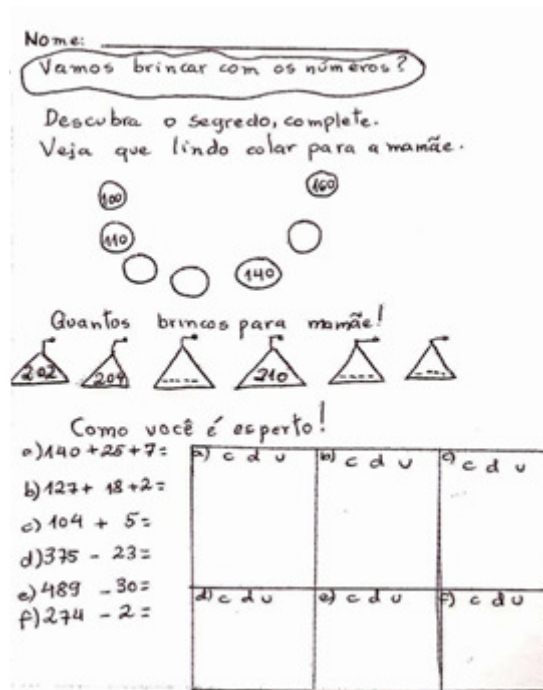 Nome:
Vamos brincar com os números?
Descubra o segredo, complete.
Veja que lindo colar para a mamãe.
100 160
110
140
Quantos brincos para mamãe!
202 204 ---- 210 ---- ----
Como você é esperto!
a) 140 + 25 + 7 =
b) 127 + 18 + 2 =
c) 104 + 5 =
d) 375 - 23 =
e) 489 - 30 =
f) 274 - 2 =
a) c d u b) c d u c) c d u
d) c d u e) c d u f) c d u